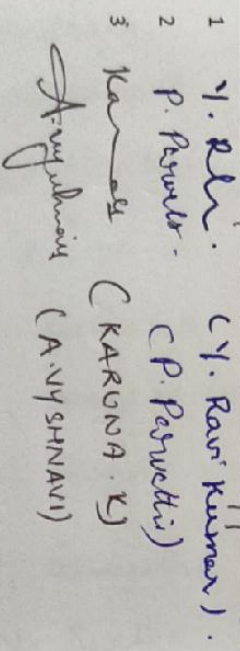 1 Y. Ravi. (Y. Ravi Kumar).
2 P. Parvathi. (P. Parvathi)
3 Karuna (KARUNA.K)
A.vyshnavi (A.VYSHNAVI)